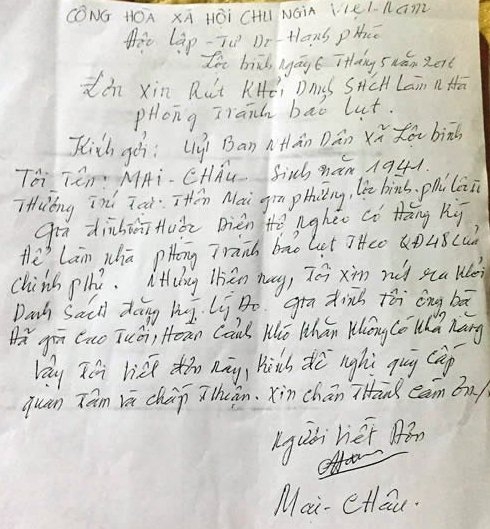 CỘNG HÒA XÃ HỘI CHU NGIA VIỆT-NAM
Độc lập - Tự Do - Hạnh phúc
Lộc bình ngày 6 Tháng 5 năm 2016
Đơn xin Rút KHỏi DANH SÁCH Làm NHà
phòng Tránh bảo lụt.
Kính gởi: Uỷ Ban NHân Dân Xã Lộc bình
Tôi Tên: MAI - CHÂU - Sinh năm 1941.
THường Trú Tại: THôn Mai gia phường, lộc bình. phú lộc
gia đình tôi THuộc Diện Hộ Nghèo có Đăng Ký
Để làm nhà phòng Tránh bảo lụt THeo QĐ48 của
chính phủ. NHưng Hiện nay, Tôi xin rút ra khỏi
Danh Sách đăng ký. Lý Do. gia đình Tôi ông bà
Đã già cao Tuổi, Hoàn cảnh KHó KHăn KHông có KHả năng
Vậy Tôi viết đơn này, kính đề nghị quý cấp
quan Tâm và chấp THuận. Xin chân THành cảm ơn/
Người viết Đơn
Mai - Châu.